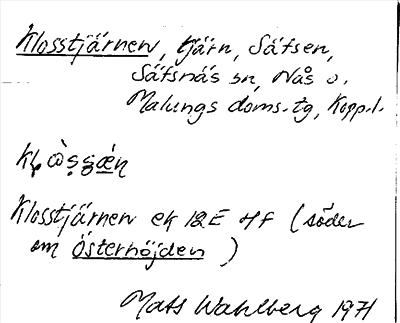 Klosstjärnen, tjärn, Säfsen,
Säfsnäs sn, Nås o.
Malungs doms.tg, Kopp.l.
Klosstjärnen ek 12E 4f (söder
om Österhöjden)
Mats Wahlberg 1971